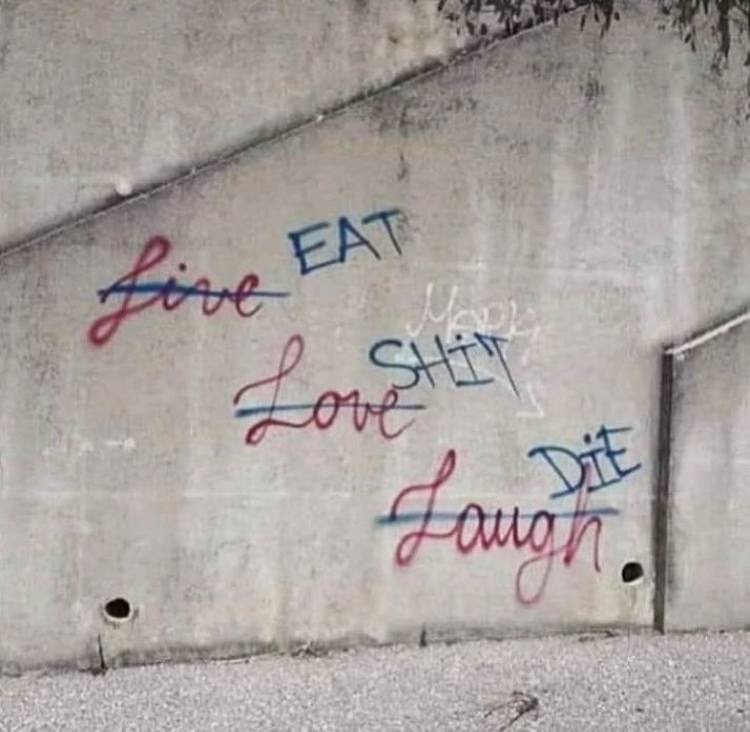 Live EAT
Love SHIT
Laugh DIE